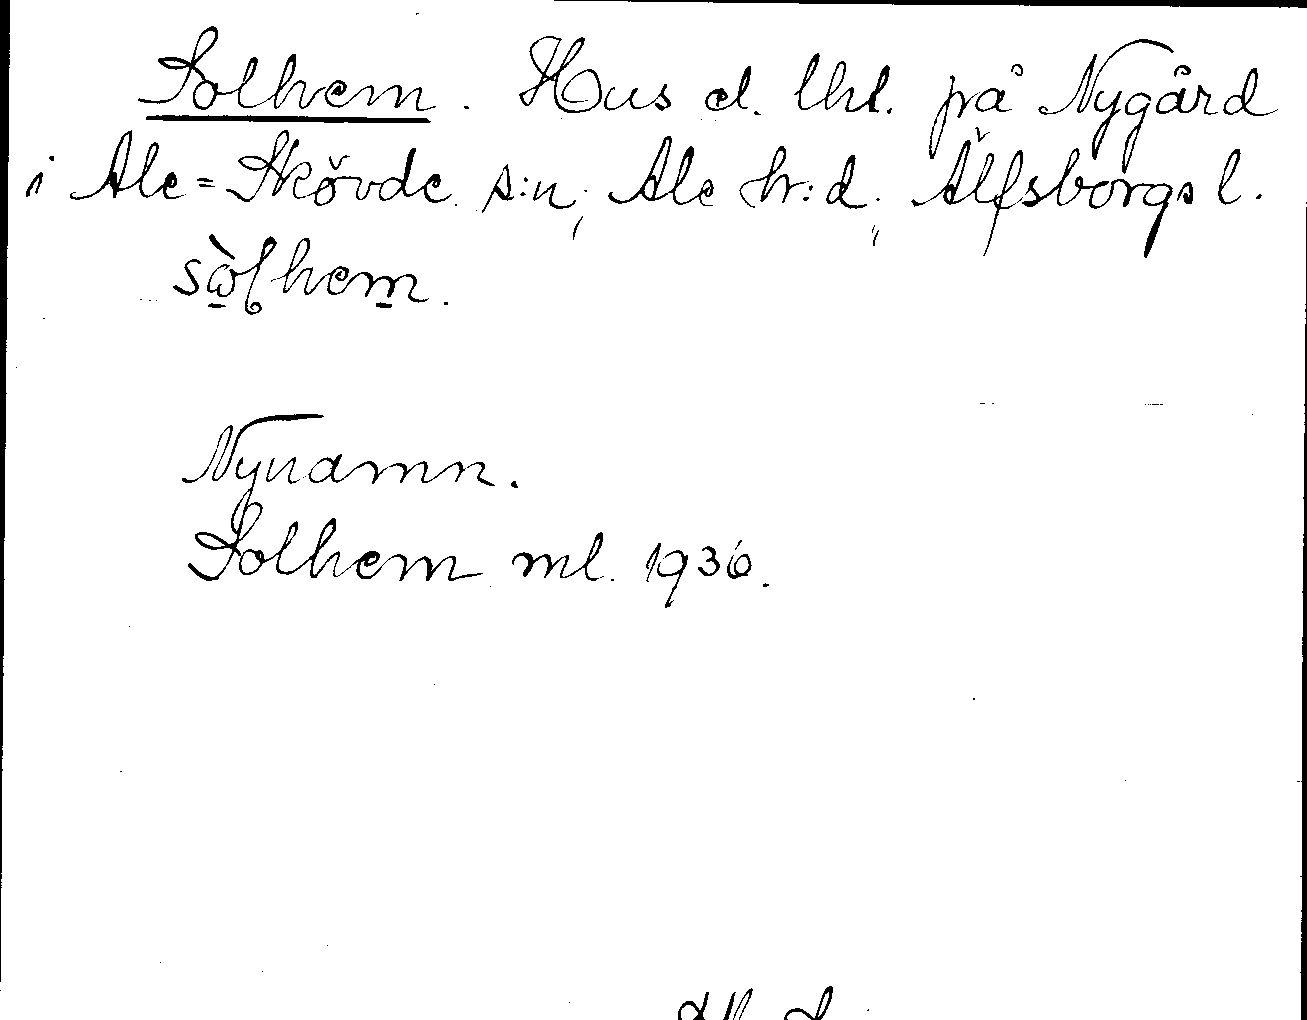 Solhem. Hus el. lht. på Nygård
i Ale=Skövde s:n, Ale hr:d, Älfsborgs l.
sòlhem.
Nynamn.
Solhem ml. 1936.